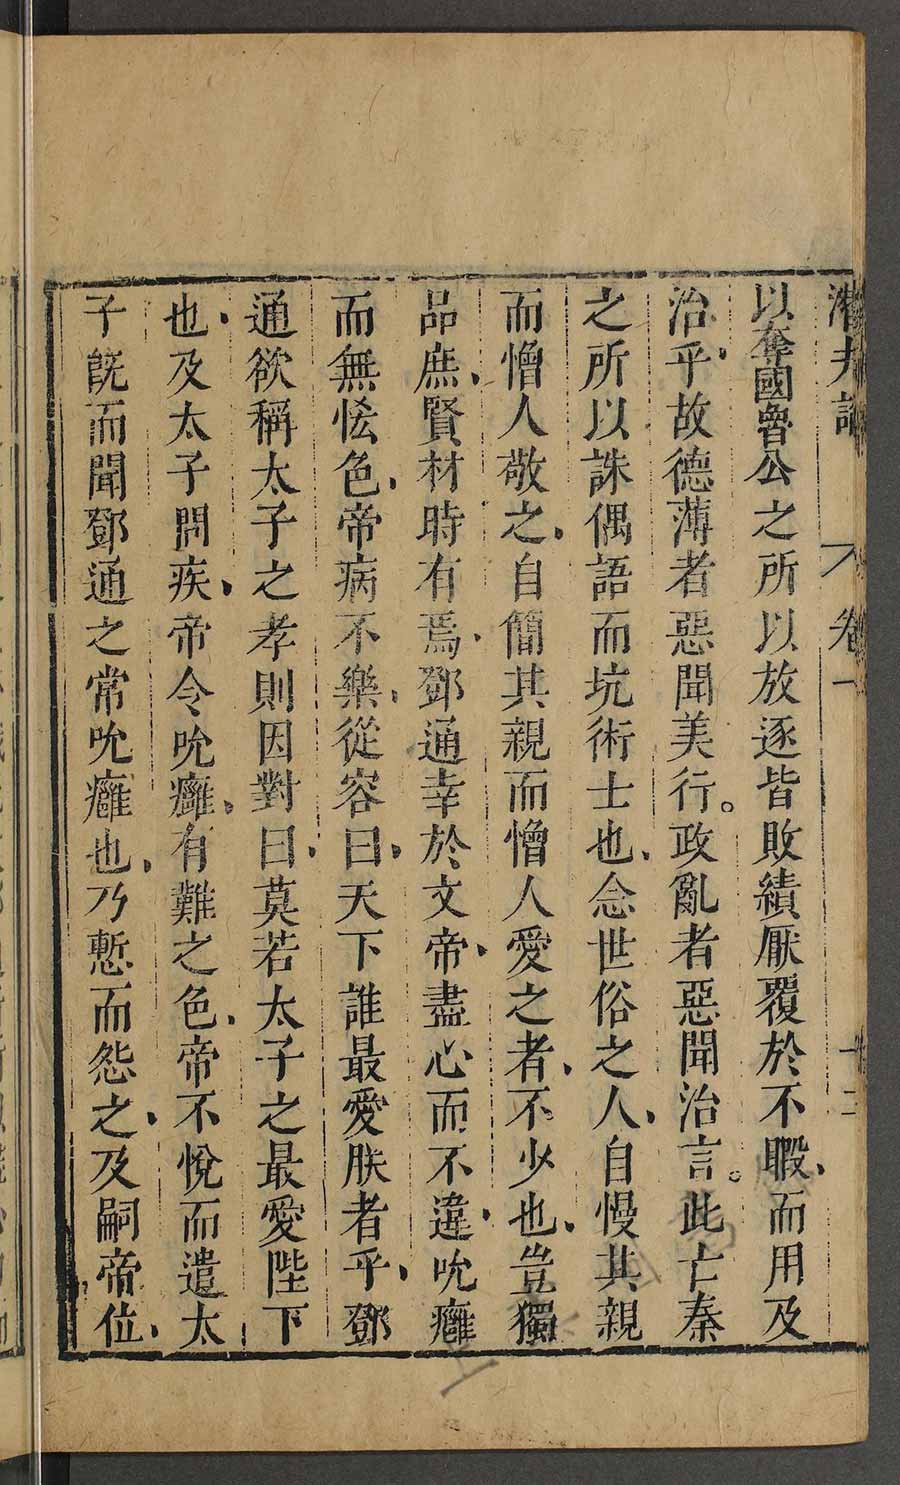 潛夫論 卷一 十二
以奪國魯公之所以放逐皆敗績厭覆於不暇、而用及
治乎、故德薄者惡聞美行。政亂者惡聞治言。此亡秦
之所以誅偶語而坑術士也、今世俗之人、自慢其親
而憎人敬之、自簡其親而憎人愛之者、不少也、豈獨
品庶、賢材時有焉、鄧通幸於文帝、盡心而不違、吮癰
而無恡色、帝病不樂、從容曰、天下誰最愛朕者乎、鄧
通欲稱太子之孝則因對曰、莫若太子之最愛陛下
也、及太子問疾、帝令吮癰、有難之色、帝不悅而遣太
子旣而聞鄧通之常吮癰也、乃慙而怨之、及嗣帝位、